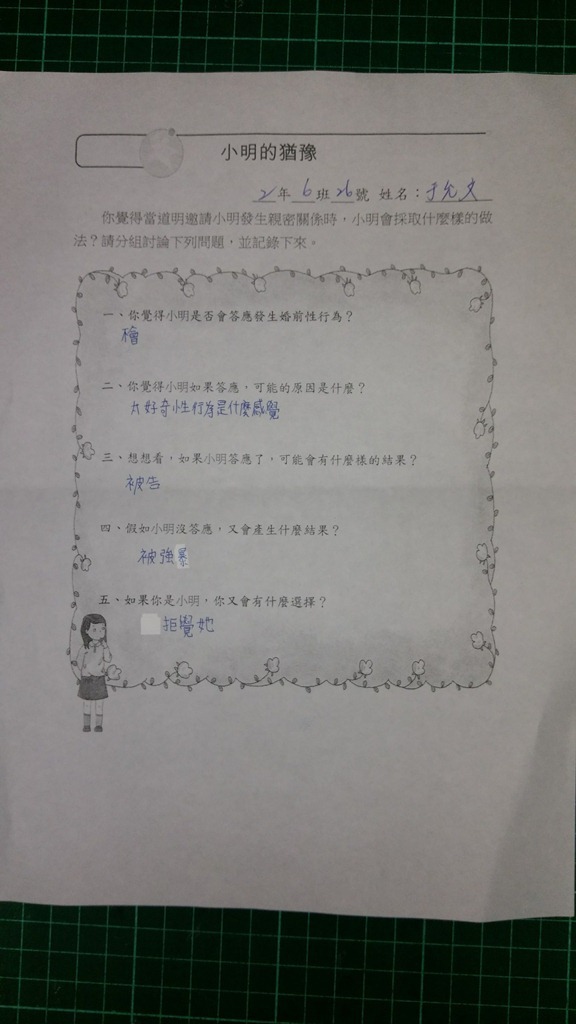 小明的猶豫
2年6班26號 姓名：于允文
你覺得當道明邀請小明發生親密關係時，小明會採取什麼樣的做
法？請分組討論下列問題，並記錄下來。
一、你覺得小明是否會答應發生婚前性行為？
檜
二、你覺得小明如果答應，可能的原因是什麼？
太好奇性行為是什麼感覺
三、想想看，如果小明答應了，可能會有什麼樣的結果？
被告
四、假如小明沒答應，又會產生什麼結果？
被強暴
五、如果你是小明，你又會有什麼選擇？
拒覺她